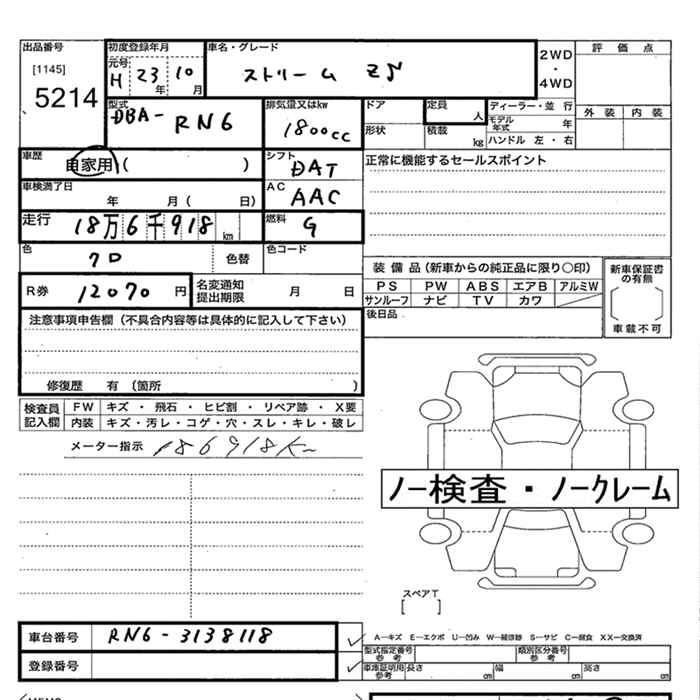 出品番号
[1145]
5214
初度登録年月
元号
H 23 年 10 月
車名・グレード
ストリーム ZS
2WD
・
4WD
評価点
外装 内装
型式
DBA- RN6
排気量又はkw
1800cc
ドア
形状
定員
人
積載
kg
ディーラー・並行
モデル年式 年
ハンドル 左・右
車歴
自家用 ( )
シフト
DAT
正常に機能するセールスポイント
車検満了日
年 月 ( 日)
AC
AAC
走行
18万6千918 km
燃料
G
色
クロ
色替
色コード
R券 12070 円
名変通知
提出期限
月 日
装備品(新車からの純正品に限り○印)
PS PW ABS エアB アルミW
サンルーフ ナビ TV カワ
新車保証書
の有無
車載不可
後日品
注意事項申告欄(不具合内容等は具体的に記入して下さい)
修復歴 有 〔箇所 )
検査員
記入欄
FW キズ・飛石・ヒビ割・リペア跡・X要
内装 キズ・汚レ・コゲ・穴・スレ・キレ・破レ
メーター指示 186918K
ノー検査・ノークレーム
スペアT
[ ]
車台番号 RN6-3138118
登録番号
A―キズ E―エクボ U―凹み W―補修跡 S―サビ C―腐食 XX―交換済
型式指定番号
参考
類別区分番号
参考
車庫証明用
参考
長さ cm 幅 cm 高さ cm